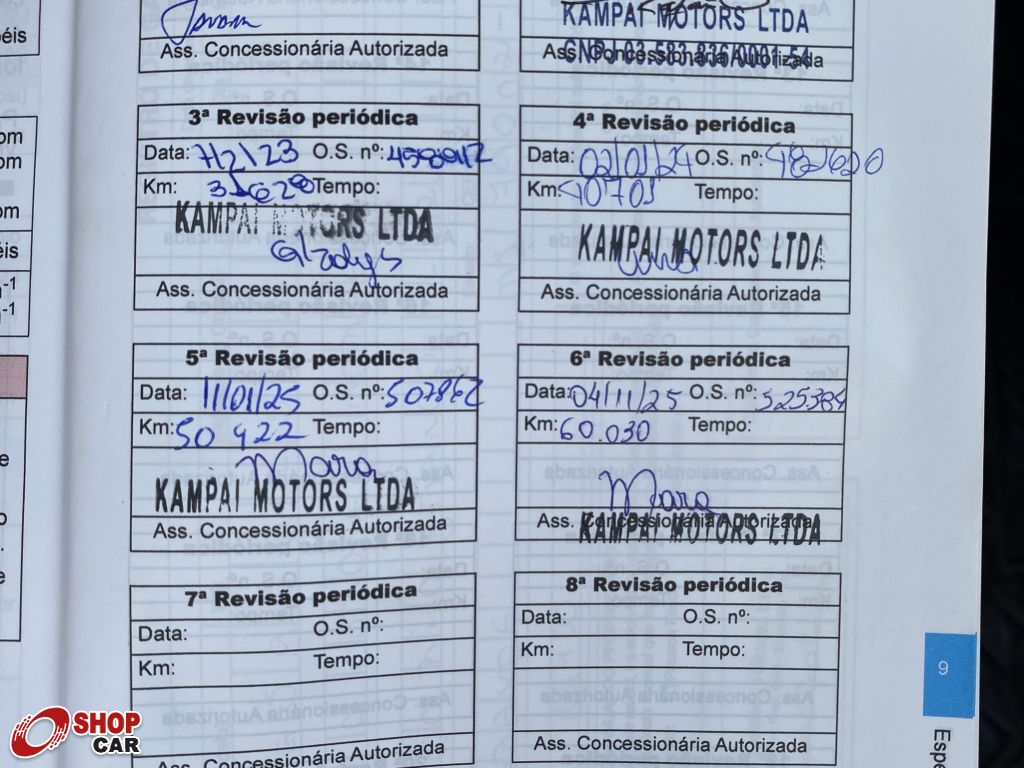 éis
Ass. Concessionária Autorizada
KAMPAI MOTORS LTDA
CNPJ 03.583.836/0001-51
Ass. Concessionária Autorizada
om
om
om
éis
-1
-1
e
o
.
e
3ª Revisão periódica
Data: 7/2/23 O.S. nº:
Km: Tempo:
KAMPAI MOTORS LTDA
Gladys
Ass. Concessionária Autorizada
4ª Revisão periódica
Data: 02/01/24 O.S. nº: 482620
Km: 40701 Tempo:
KAMPAI MOTORS LTDA
Ass. Concessionária Autorizada
5ª Revisão periódica
Data: 11/01/25 O.S. nº: 507862
Km: 50 422 Tempo:
Mara
KAMPAI MOTORS LTDA
Ass. Concessionária Autorizada
6ª Revisão periódica
Data: 04/11/25 O.S. nº: 525384
Km: 60.030 Tempo:
Mara
Ass. Concessionária Autorizada
KAMPAI MOTORS LTDA
7ª Revisão periódica
Data: O.S. nº:
Km: Tempo:
Ass. Concessionária Autorizada
8ª Revisão periódica
Data: O.S. nº:
Km: Tempo:
Ass. Concessionária Autorizada
9
Espe
SHOP
CAR